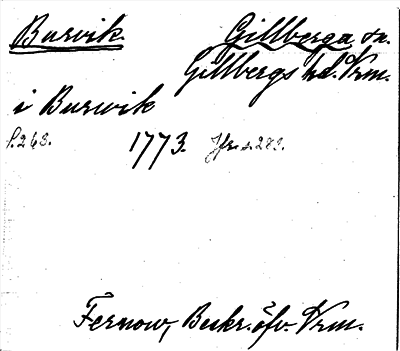 Burvik. Gillberga sn.
Gillbergs hd. Vrm.
i Burwik
s. 263. 1773. Jfr. s. 282.
Fernow, Beskr. öfv. Vrm.